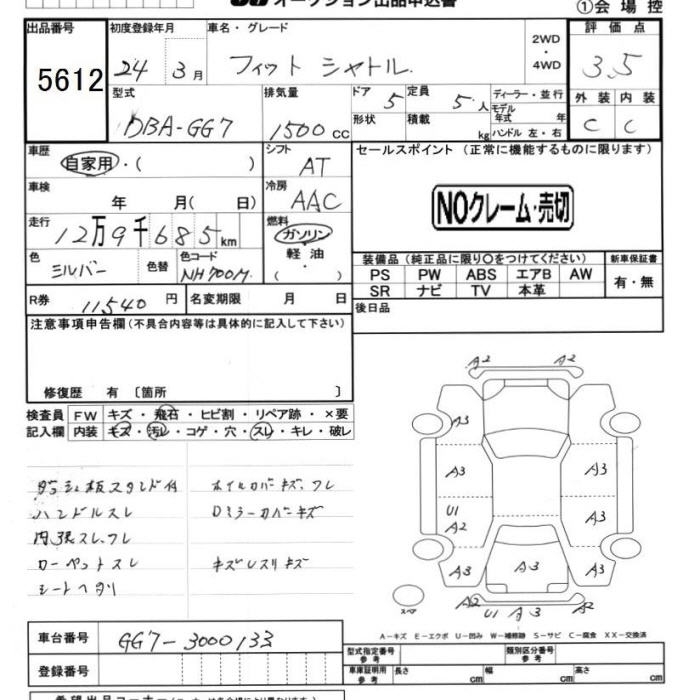 オークション出品申込書
①会場控
出品番号
初度登録年月
車名・グレード
2WD
・
4WD
評価点
5612
24 3月
フィット シャトル
3.5
型式
排気量
ドア 5
定員 5人
ディーラー・並行
外装
内装
DBA-GG7
1500cc
形状
積載
kg
モデル年式 年
ハンドル 左・右
C
C
車歴
自家用・( )
シフト
AT
セールスポイント (正常に機能するものに限ります)
車検
年 月( 日)
冷房
AAC
NOクレーム・売切
走行
12万9千685km
燃料
ガソリン
軽油
( )
色
シルバー
色替
色コード
NH700M
装備品(純正品に限り○をつけてください)
新車保証書
PS PW ABS エアB AW
有・無
SR ナビ TV 本革
R券
11540円
名変期限 月 日
後日品
注意事項申告欄(不具合内容等は具体的に記入して下さい)
修復歴 有 〔箇所 〕
検査員
FW
キズ・飛石・ヒビ割・リペア跡・×要
記入欄
内装
キズ・汚レ・コゲ・穴・スレ・キレ・破レ
ダッシュ板スタンド付
ホイルカバーキズ、フレ
ハンドルスレ
Dミラーカバーキズ
内張スレ、フレ
キズUスリキズ
シートヘタリ
A2 A2
A3
A3 A3
U1
A2
A3
A3 A3 A3
スペア
A2 U1 A3 A2
A-キズ E-エクボ U-凹み W-補修跡 S-サビ C-腐食 XX-交換済
車台番号
GG7-3000133
型式指定番号
参考
類別区分番号
参考
登録番号
車庫証明用
参考
長さ cm
幅 cm
高さ cm